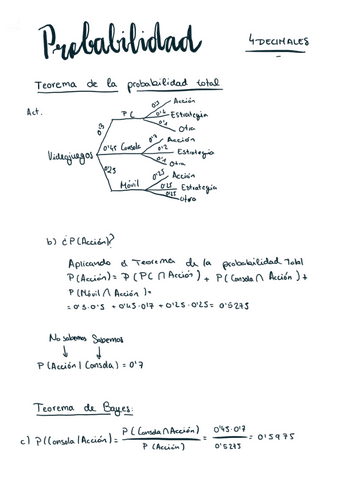 Probabilidad
4 DECIMALES
Teorema de la probabilidad total
Act.
Videojuegos
0'3
PC
0'5 Acción
0'4 Estrategia
0'1 Otra
0'45 Consola
0'7 Acción
0'2 Estrategia
0'1 Otra
0'25
Móvil
0'25 Acción
Estrategia
Otro
b) ¿P(Acción)?
Aplicando el Teorema de la probabilidad Total
P(Acción) = P(PC ∩ Acción) + P(Consola ∩ Acción) +
P(Móvil ∩ Acción) =
= 0'3·0'5 + 0'45·0'7 + 0'25·0'25 = 0'5275
No sabemos Sabemos
↓ ↓
P(Acción | Consola) = 0'7
Teorema de Bayes:
c) P(Consola | Acción) = P(Consola ∩ Acción) / P(Acción) = 0'45·0'7 / 0'5275 = 0'5975